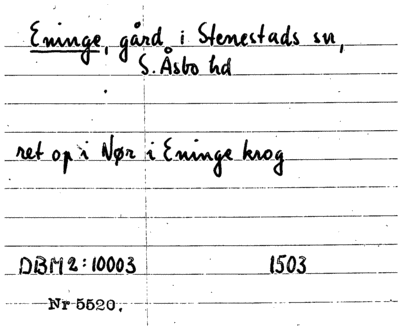 Eninge, gård i Stenestads sn,
S. Åsbo hd
ret op i Nør i Eninge krog
DBM 2:10003 1503
Nr 5520.